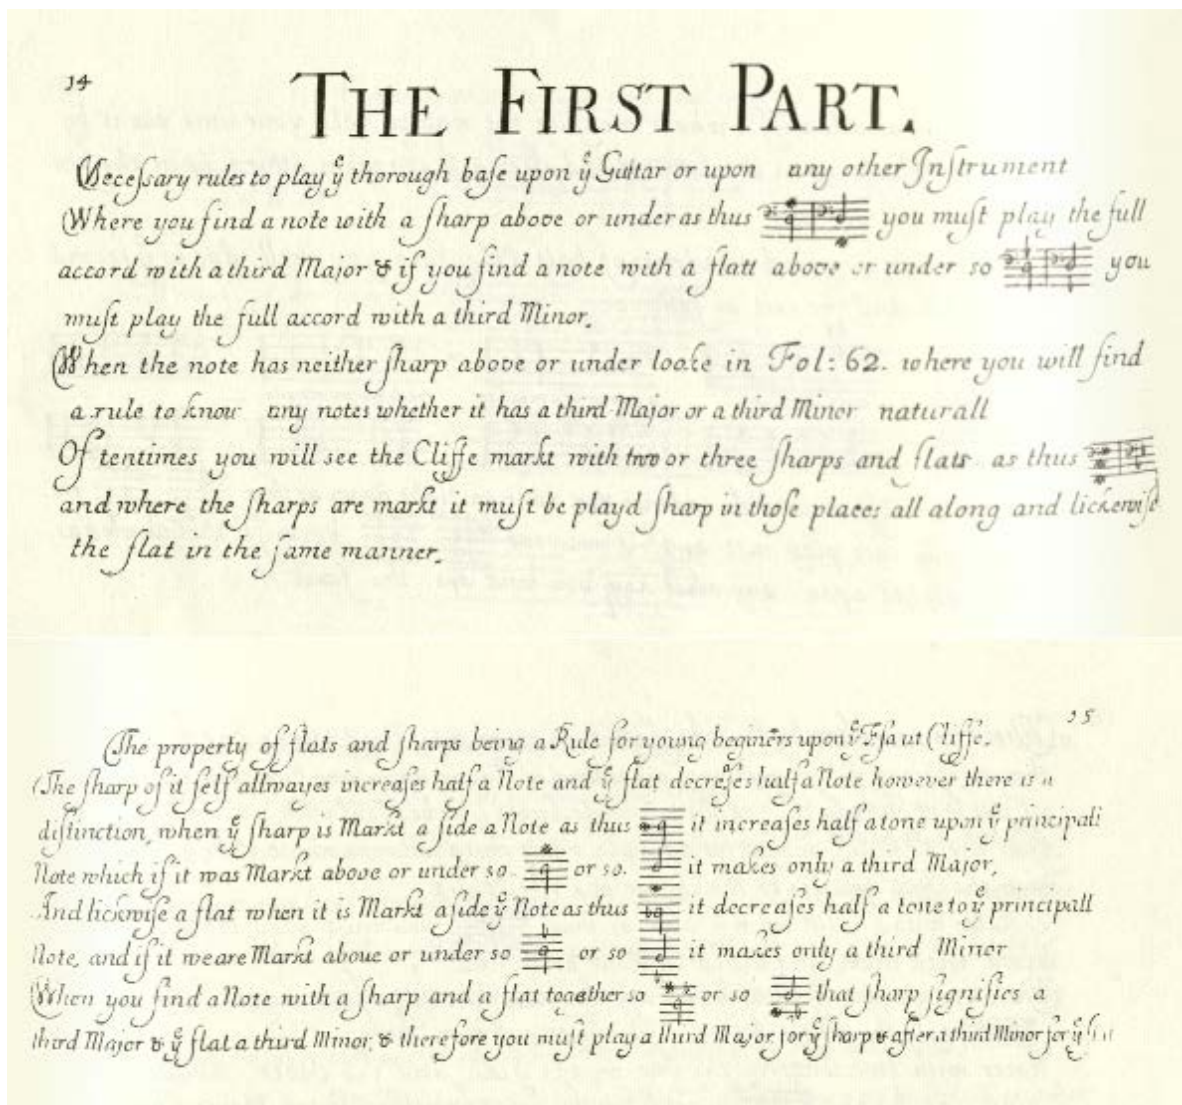 14
THE FIRST PART.
Neceſsary rules to play ẙ thorough baſe upon ẙ Guittar or upon any other Inſtrument
Where you find a note with a ſharp above or under as thus you muſt play the full
accord with a third Major & if you find a note with a flatt above or under so you
muſt play the full accord with a third Minor.
When the note has neither ſharp above or under looke in Fol: 62. where you will find
a rule to know any notes whether it has a third Major or a third Minor naturall
Of tentimes you will see the Cliffe markt with two or three ſharps and flats as thus
and where the ſharps are markt it muſt be playd ſharp in thoſe places all along and lickewiſe
the flat in the ſame manner.
15
The property of flats and ſharps being a Rule for young beginers upon ẙ Ffa ut Cliffe.
The ſharp of it ſelf allwayes increaſes half a Note and ẙ flat decreſes half a Note however there is a
diſtinction, when ẙ ſharp is Markt a ſide a Note as thus it increaſes half a tone upon ẙ principall
Note which if it was Markt above or under so or so. it makes only a third Major,
And lickwiſe a flat when it is Markt a ſide ẙ Note as thus it decreaſes half a tone to ẙ principall
Note, and if it weare Markt aboue or under so or so it makes only a third Minor
When you find a Note with a ſharp and a flat together so or so that ſharp ſignifies a
third Major & ẙ flat a third Minor, & therefore you muſt play a third Major for ẙ ſharp & after a third Minor for ẙ